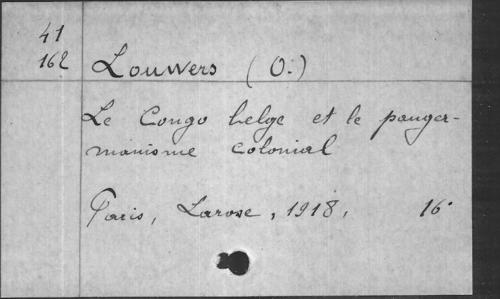 41
162
Louwers (O.)
Le Congo belge et le panger-
manisme colonial
Paris, Larose, 1918, 16°